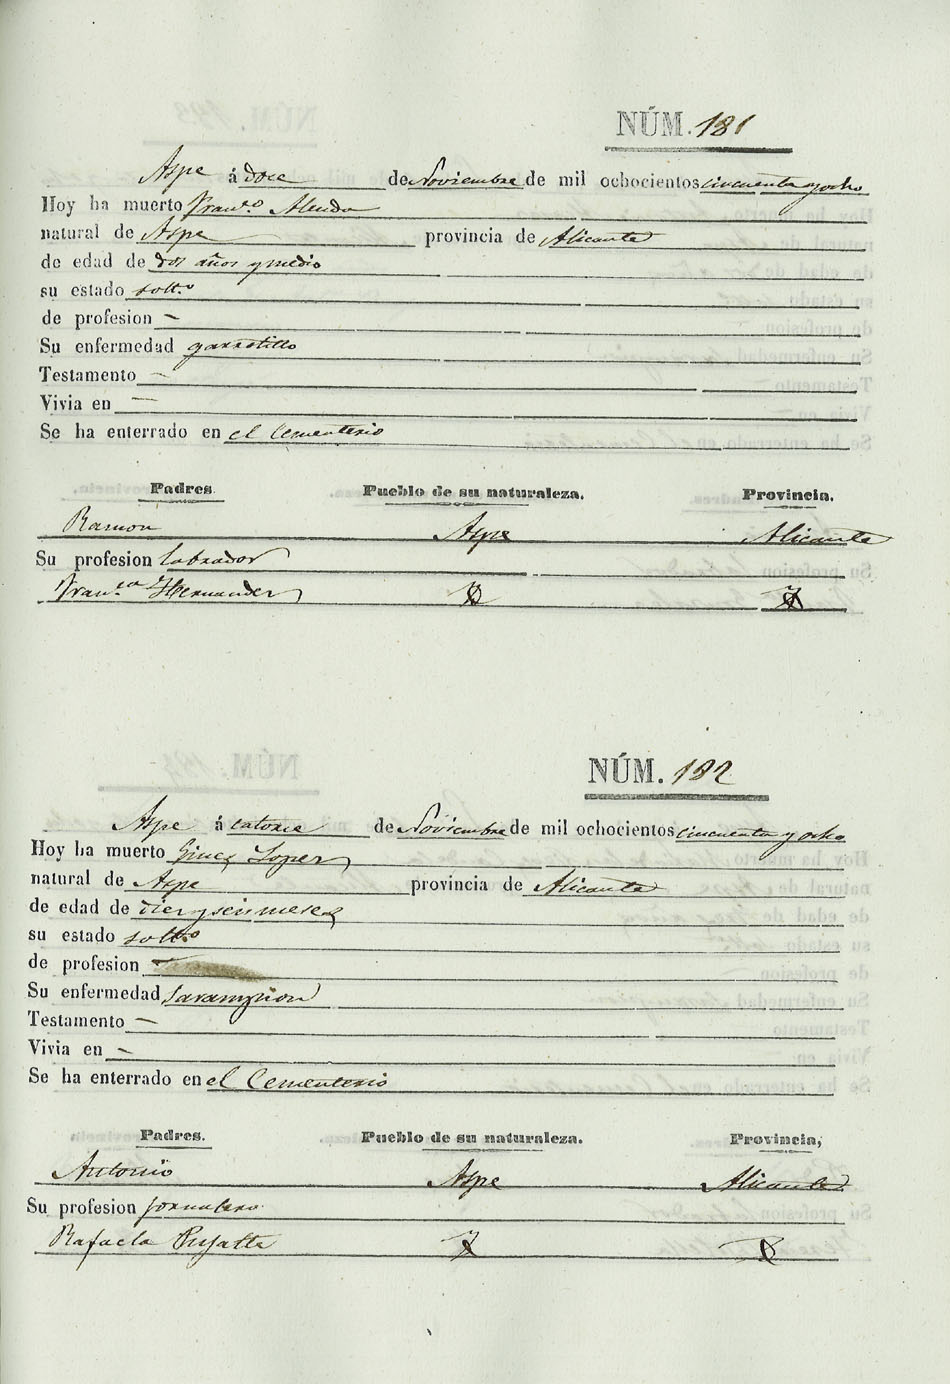 NÚM. 181
Aspe á doce de Noviembre de mil ochocientos cincuenta y ocho
Hoy ha muerto Fran.co Alenda
natural de Aspe provincia de Alicante
de edad de dos años y medio
su estado solt.o
de profesion —
Su enfermedad garrotillo
Testamento —
Vivia en —
Se ha enterrado en el Cementerio
Padres Pueblo de su naturaleza. Provincia.
Ramon Aspe Alicante
Su profesion labrador
Fran.ca Hernandez
NÚM. 182
Aspe á catorce de Noviembre de mil ochocientos cincuenta y ocho
Hoy ha muerto Gines Lopez
natural de Aspe provincia de Alicante
de edad de diez y seis meses
su estado solt.o
de profesion
Su enfermedad sarampion
Testamento —
Vivia en —
Se ha enterrado en el Cementerio
Padres. Pueblo de su naturaleza. Provincia,
Antonio Aspe Alicante
Su profesion jornalero
Rafaela Pujalte